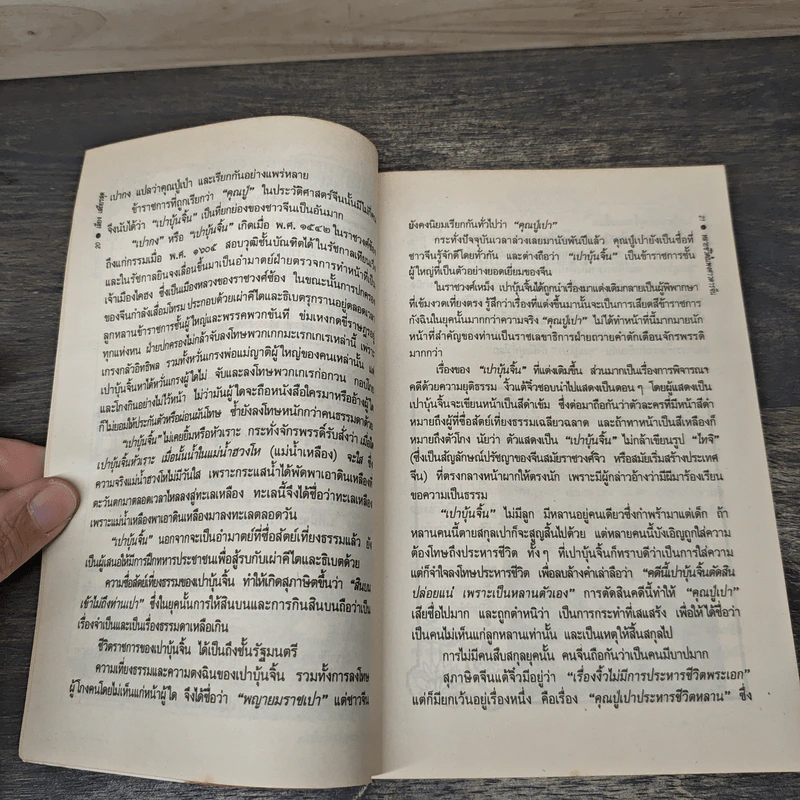 ๒๐ ● เล่ง เสี้ยวฮุด
เปากง แปลว่าคุณปู่เปา และเรียกกันอย่างแพร่หลาย
ข้าราชการที่ถูกเรียกว่า “คุณปู่” ในประวัติศาสตร์จีนนั้นมีไม่
จึงนับได้ว่า “เปาบุ้นจิ้น” เป็นที่ยกย่องของชาวจีนเป็นอันมาก
“เปากง” หรือ “เปาบุ้นจิ้น” เกิดเมื่อ พ.ศ. ๑๕๔๒ ในราชวงศ์ซ้อง
ถึงแก่กรรมเมื่อ พ.ศ. ๑๖๐๕ สอบวุฒิชั้นบัณฑิตได้ในรัชกาลเทียน
และในรัชกาลยินจงเลื่อนขึ้นมาเป็นอำมาตย์ฝ่ายตรวจการทำหน้าที่เป็น
เจ้าเมืองไคฮง ซึ่งเป็นเมืองหลวงของราชวงศ์ซ้อง ในขณะนั้นการปกครอง
ของจีนกำลังเสื่อมโทรม ประกอบด้วยเผ่าคีไตและธิเบตรุกรานอยู่ตลอดเวลา
ลูกหลานข้าราชการชั้นผู้ใหญ่และพรรคพวกขันที ข่มเหงกดขี่ราษฎรอยู่
ทุกแห่งหน ฝ่ายปกครองไม่กล้าจับลงโทษพวกเกะมะเรกเกเรเหล่านี้ เพราะ
เกรงกลัวอิทธิพล รวมทั้งหวั่นเกรงพ่อแม่ญาติผู้ใหญ่ของคนเหล่านั้น แต่
เปาบุ้นจิ้นหาได้หวั่นเกรงผู้ใดไม่ จับและลงโทษพวกเกเรก่อกวน กอบโกย
และโกงกินอย่างไม่ไว้หน้า ไม่ว่ามันผู้ใดจะถือหนังสือใครมาหรืออ้างผู้ใด
ก็ไม่ยอมให้ประกันตัวหรือผ่อนผันโทษ ซ้ำยังลงโทษหนักกว่าคนธรรมดาด้วย
“เปาบุ้นจิ้น” ไม่เคยยิ้มหรือหัวเราะ กระทั่งจักรพรรดิ์รับสั่งว่า เมื่อใด
เปาบุ้นจิ้นหัวเราะ เมื่อนั้นน้ำในแม่น้ำฮวงโห (แม่น้ำเหลือง) จะใส ซึ่ง
ความจริงแม่น้ำฮวงโหไม่มีวันใส เพราะกระแสน้ำได้พัดพาเอาดินเหลืองที่
ตะวันตกมาตลอดเวลาไหลลงสู่ทะเลเหลือง ทะเลนี้จึงได้ชื่อว่าทะเลเหลือง
เพราะแม่น้ำเหลืองพาเอาดินเหลืองมาลงทะเลตลอดวัน
“เปาบุ้นจิ้น” นอกจากจะเป็นอำมาตย์ที่ซื่อสัตย์เที่ยงธรรมแล้ว ยัง
เป็นผู้เสนอให้มีการฝึกทหารประชาชนเพื่อสู้รบกับเผ่าคีไตและธิเบตด้วย
ความซื่อสัตย์เที่ยงธรรมของเปาบุ้นจิ้น ทำให้เกิดสุภาษิตขึ้นว่า “สินบน
เข้าไม่ถึงท่านเปา” ซึ่งในยุคนั้นการให้สินบนและการกินสินบนถือว่าเป็น
เรื่องจำเป็นและเป็นเรื่องธรรมดาเหลือเกิน
ชีวิตราชการของเปาบุ้นจิ้น ได้เป็นถึงชั้นรัฐมนตรี
ความเที่ยงธรรมและความดงฉินของเปาบุ้นจิ้น รวมทั้งการลงโทษ
ผู้โกงคนโดยไม่เห็นแก่หน้าผู้ใด จึงได้ชื่อว่า “พญายมราชเปา” แต่ชาวจีน
๒๑ ●
ยังคงนิยมเรียกกันทั่วไปว่า “คุณปู่เปา”
กระทั่งปัจจุบันเวลาล่วงเลยมานับพันปีแล้ว คุณปู่เปายังเป็นชื่อที่
ชาวจีนรู้จักดีโดยทั่วกัน และต่างถือว่า “เปาบุ้นจิ้น” เป็นข้าราชการชั้น
ผู้ใหญ่ที่เป็นตัวอย่างยอดเยี่ยมของจีน
ในราชวงศ์เหม็ง เปาบุ้นจิ้นได้ถูกนำเรื่องมาแต่งเติมกลายเป็นผู้พิพากษา
ที่เข้มงวดเที่ยงตรง รู้สึกว่าเรื่องที่แต่งขึ้นมานั้นจะเป็นการเสียดสีข้าราชการ
กังฉินในยุคนั้นมากกว่าความจริง “คุณปู่เปา” ไม่ได้ทำหน้าที่นี้มากมายนัก
หน้าที่สำคัญของท่านเป็นราชเลขาธิการฝ่ายถวายคำตักเตือนจักรพรรดิ
มากกว่า
เรื่องของ “เปาบุ้นจิ้น” ที่แต่งเติมขึ้น ส่วนมากเป็นเรื่องการพิจารณา
คดีด้วยความยุติธรรม งิ้วแต้จิ๋วชอบนำไปแสดงเป็นตอนๆ โดยผู้แสดงเป็น
เปาบุ้นจิ้นจะเขียนหน้าเป็นสีดำเข้ม ซึ่งต่อมาถือกันว่าตัวละครที่มีหน้าสีดำ
หมายถึงผู้ที่ซื่อสัตย์เที่ยงธรรมเฉลียวฉลาด และถ้าทาหน้าเป็นสีเหลืองก็
หมายถึงตัวโกง นัยว่า ตัวแสดงเป็น “เปาบุ้นจิ้น” ไม่กล้าเขียนรูป “ไทจี”
(ซึ่งเป็นสัญลักษณ์ปรัชญาของจีนสมัยราชวงศ์จิว หรือสมัยเริ่มสร้างประเทศ
จีน) ที่ตรงกลางหน้าผากให้ตรงนัก เพราะมีผู้กล่าวอ้างว่ามีผีมาร้องเรียน
ขอความเป็นธรรม
“เปาบุ้นจิ้น” ไม่มีลูก มีหลานอยู่คนเดียวซึ่งกำพร้ามาแต่เด็ก ถ้า
หลานคนนี้ตายสกุลเปาก็จะสูญสิ้นไปด้วย แต่หลายคนนี้บังเอิญถูกใส่ความ
ต้องโทษถึงประหารชีวิต ทั้งๆ ที่เปาบุ้นจิ้นก็ทราบดีว่าเป็นการใส่ความ
แต่ก็จำใจลงโทษประหารชีวิต เพื่อลบล้างคำเล่าลือว่า “คดีนี้เปาบุ้นจิ้นตัดสิน
ปล่อยแน่ เพราะเป็นหลานตัวเอง” การตัดสินคดีนี้ทำให้ “คุณปู่เปา”
เสียชื่อไปมาก และถูกตำหนิว่า เป็นการกระทำที่เสแสร้ง เพื่อให้ได้ชื่อว่า
เป็นคนไม่เห็นแก่ลูกหลานเท่านั้น และเป็นเหตุให้สิ้นสกุลไป
การไม่มีคนสืบสกุลยุคนั้น คนจีนถือกันว่าเป็นคนมีบาปมาก
สุภาษิตจีนแต้จิ๋วมีอยู่ว่า “เรื่องงิ้วไม่มีการประหารชีวิตพระเอก”
แต่ก็มียกเว้นอยู่เรื่องหนึ่ง คือเรื่อง “คุณปู่เปาประหารชีวิตหลาน” ซึ่ง